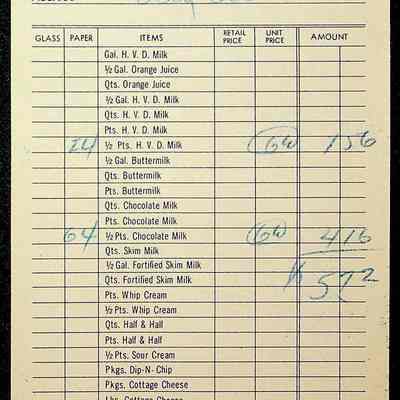 GLASS PAPER ITEMS RETAIL PRICE UNIT PRICE AMOUNT
Gal. H. V. D. Milk
½ Gal. Orange Juice
Qts. Orange Juice
½ Gal. H. V. D. Milk
Qts. H. V. D. Milk
Pts. H. V. D. Milk
24 ½ Pts. H. V. D. Milk 6½ 156
½ Gal. Buttermilk
Qts. Buttermilk
Pts. Buttermilk
Qts. Chocolate Milk
Pts. Chocolate Milk
64 ½ Pts. Chocolate Milk 6½ 416
Qts. Skim Milk
½ Gal. Fortified Skim Milk $ 572
Qts. Fortified Skim Milk
Pts. Whip Cream
½ Pts. Whip Cream
Qts. Half & Half
Pts. Half & Half
½ Pts. Sour Cream
Pkgs. Dip-N-Chip
Pkgs. Cottage Cheese
Lbs. Cottage Cheese